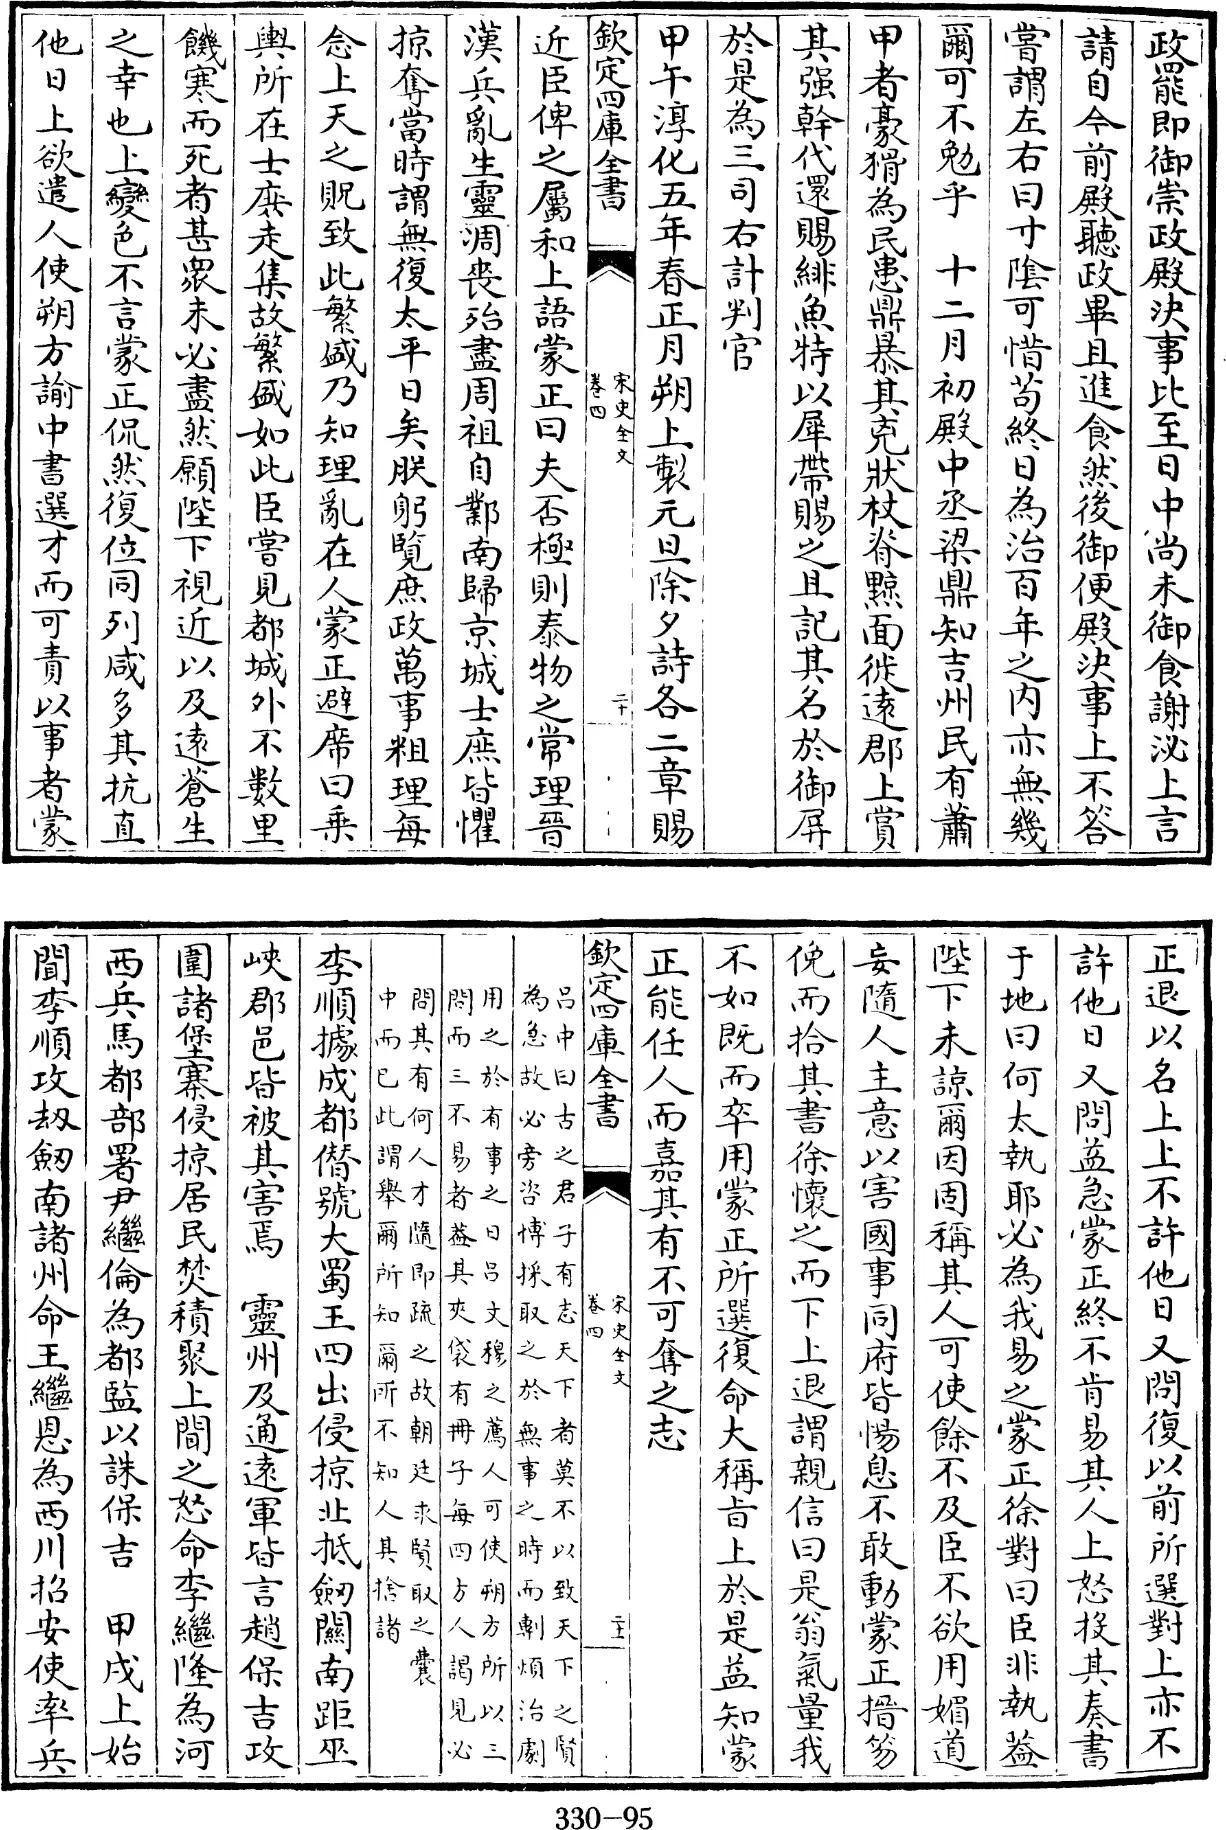 政罷即御崇政殿決事比至日中尚未御食謝泌上言
請自今前殿聽政畢且進食然後御便殿決事上不答
嘗謂左右曰寸陰可惜苟終日為治百年之内亦無幾
爾可不勉乎　十二月初殿中丞梁鼎知吉州民有蕭
甲者豪猾為民患鼎暴其兇狀杖脊黥面徙逺郡上賞
其强幹代還賜緋魚特以犀帶賜之且記其名於御屏
於是為三司右計判官
甲午淳化五年春正月朔上製元旦除夕詩各二章賜
欽定四庫全書
宋史全文
卷四
二十
近臣俾之屬和上語蒙正曰夫否極則泰物之常理晉
漢兵亂生靈凋喪殆盡周祖自鄴南歸京城士庶皆懼
掠奪當時謂無復太平日矣朕躬覽庶政萬事粗理每
念上天之貺致此繁盛乃知理亂在人蒙正避席曰乗
輿所在士庶走集故繁盛如此臣嘗見都城外不數里
饑寒而死者甚衆未必盡然願陛下視近以及逺蒼生
之幸也上變色不言蒙正侃然復位同列咸多其抗直
他日上欲遣人使朔方諭中書選才而可責以事者蒙
正退以名上上不許他日又問復以前所選對上亦不
許他日又問益急蒙正終不肯易其人上怒投其奏書
于地曰何太執耶必為我易之蒙正徐對曰臣非執葢
陛下未諒爾因固稱其人可使餘不及臣不欲用媚道
妄隨人主意以害國事同府皆惕息不敢動蒙正搢笏
俛而拾其書徐懷之而下上退謂親信曰是翁氣量我
不如既而卒用蒙正所選復命大稱旨上於是益知蒙
正能任人而嘉其有不可奪之志
欽定四庫全書
宋史全文
卷四
二十一
吕中曰古之君子有志天下者莫不以致天下之賢
為急故必旁咨博採取之於無事之時而剸煩治劇
用之於有事之日吕文穆之薦人可使朔方所以三
問而三不易者葢其夾袋有冊子每四方人謁見必
問其有何人才隨即疏之故朝廷求賢取之囊
中而已此謂舉爾所知爾所不知人其捨諸
李順據成都僭號大蜀王四出侵掠北抵劒闗南距巫
峽郡邑皆被其害焉　靈州及通逺軍皆言趙保吉攻
圍諸堡寨侵掠居民焚積聚上聞之怒命李繼隆為河
西兵馬都部署尹繼倫為都監以誅保吉　甲戌上始
聞李順攻刼劒南諸州命王繼恩為西川招安使率兵
330-95